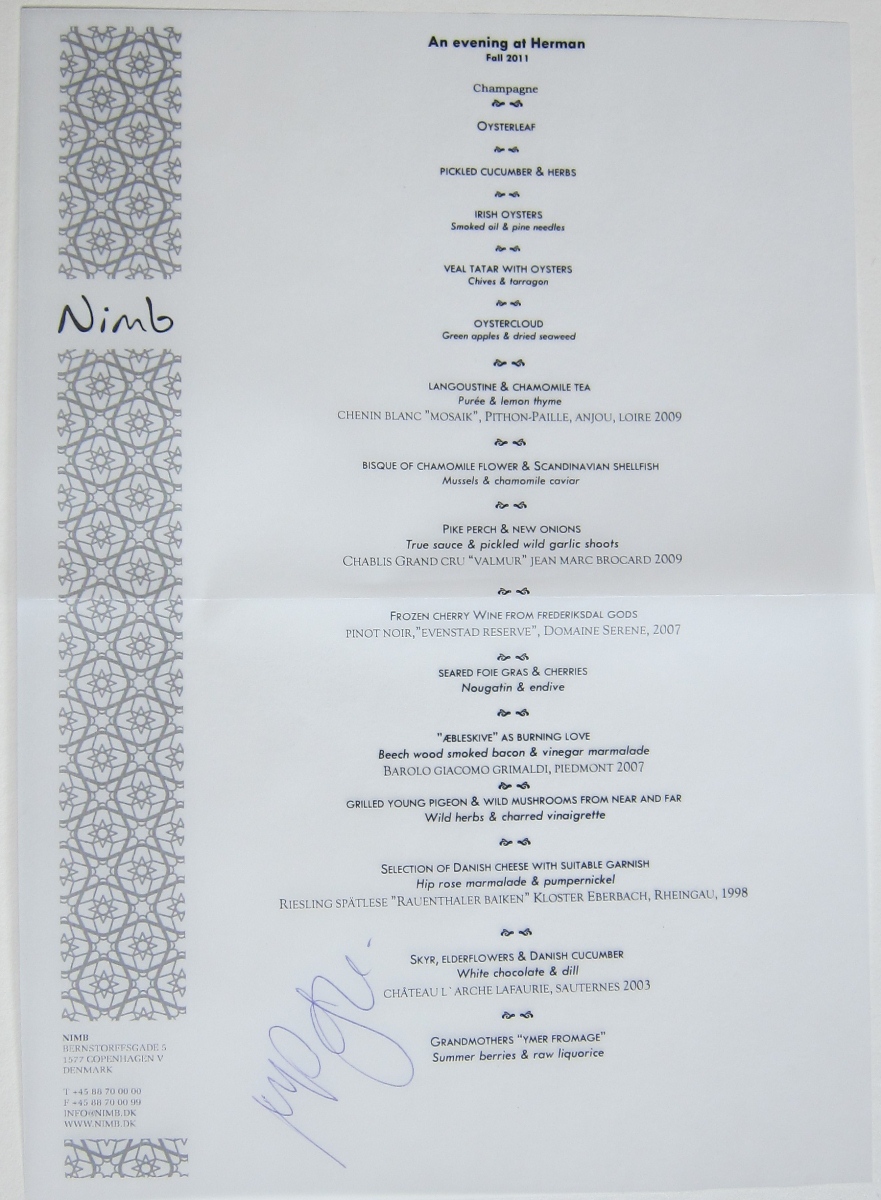 An evening at Herman
Fall 2011
Champagne
OYSTERLEAF
PICKLED CUCUMBER & HERBS
IRISH OYSTERS
Smoked oil & pine needles
VEAL TATAR WITH OYSTERS
Chives & tarragon
OYSTERCLOUD
Green apples & dried seaweed
LANGOUSTINE & CHAMOMILE TEA
Purée & lemon thyme
CHENIN BLANC "MOSAIK", PITHON-PAILLE, ANJOU, LOIRE 2009
BISQUE OF CHAMOMILE FLOWER & SCANDINAVIAN SHELLFISH
Mussels & chamomile caviar
PIKE PERCH & NEW ONIONS
True sauce & pickled wild garlic shoots
CHABLIS GRAND CRU "VALMUR" JEAN MARC BROCARD 2009
FROZEN CHERRY WINE FROM FREDERIKSDAL GODS
PINOT NOIR,"EVENSTAD RESERVE", DOMAINE SERENE, 2007
SEARED FOIE GRAS & CHERRIES
Nougatin & endive
"ÆBLESKIVE" AS BURNING LOVE
Beech wood smoked bacon & vinegar marmalade
BAROLO GIACOMO GRIMALDI, PIEDMONT 2007
GRILLED YOUNG PIGEON & WILD MUSHROOMS FROM NEAR AND FAR
Wild herbs & charred vinaigrette
SELECTION OF DANISH CHEESE WITH SUITABLE GARNISH
Hip rose marmalade & pumpernickel
RIESLING SPÄTLESE "RAUENTHALER BAIKEN" KLOSTER EBERBACH, RHEINGAU, 1998
SKYR, ELDERFLOWERS & DANISH CUCUMBER
White chocolate & dill
CHÂTEAU L´ARCHE LAFAURIE, SAUTERNES 2003
GRANDMOTHERS "YMER FROMAGE"
Summer berries & raw liquorice
Nimb
NIMB
BERNSTORFFSGADE 5
1577 COPENHAGEN V
DENMARK
T +45 88 70 00 00
F +45 88 70 00 99
INFO@NIMB.DK
WWW.NIMB.DK